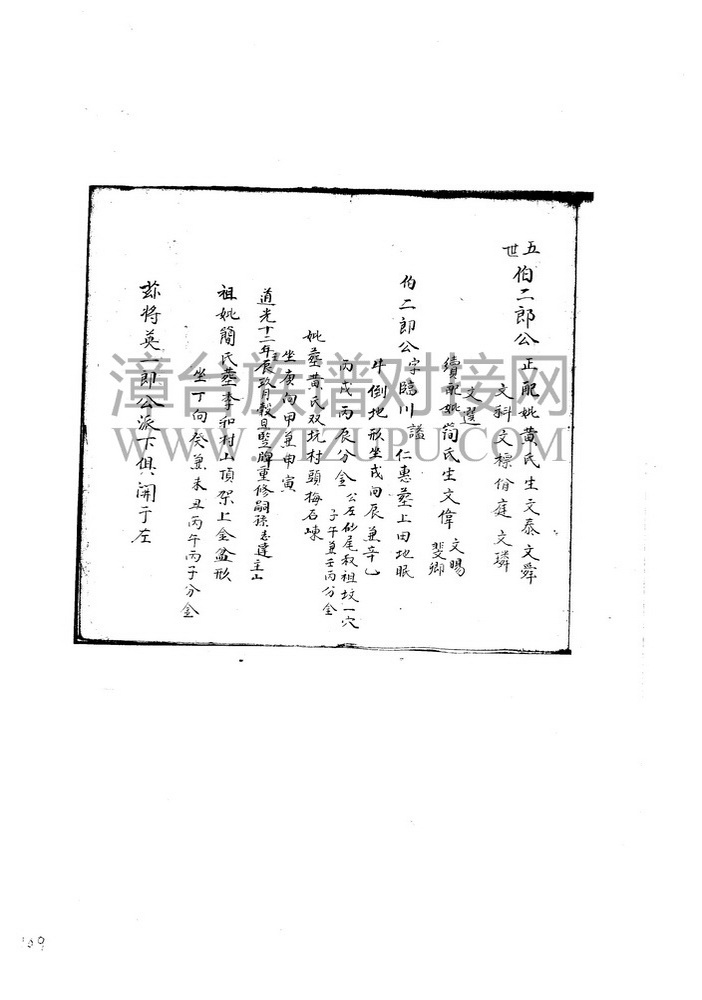 五世 伯二郎公 正配妣黄氏生文泰 文舜
文科 文標 俏庭 文璘
文選
續配妣簡氏生文偉 文賜 斐卿
伯二郎公 字臨川 諡仁惠 葬上田地眠
牛倒地形坐戌向辰兼辛乙
丙戌丙辰分金 公左畔尾叔祖坟一穴 子午兼壬丙分金
妣葬黄氏双坑村頭梅石崠
坐庚向甲兼申寅
道光十二年辰玖月穀旦竪牌重修嗣孫志達主山
祖妣簡氏葬李和村山頂架上金盆形
坐丁向癸兼未丑丙午丙子分金
茲将英一郎公派下俱開于左
漳台族谱对接网
WWW.ZTZUPU.COM
109